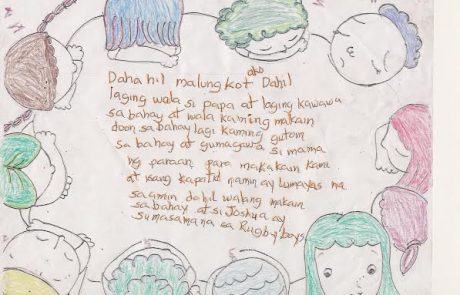 ako
Daha hil malungkot Dahil
laging wala si papa at laging kawawa
sa bahay at wala kaming makain
doon sa bahay lagi kaming gutom
sa bahay at gumagawa si mama
ng paraan para makakain kami
at isang kapatid namin ay Lumayas na
sa amin dahil walang makain
sa bahay at si Joshua ay
sumasama na sa Rugby boys